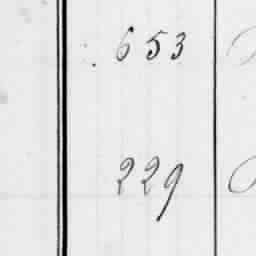 653
229